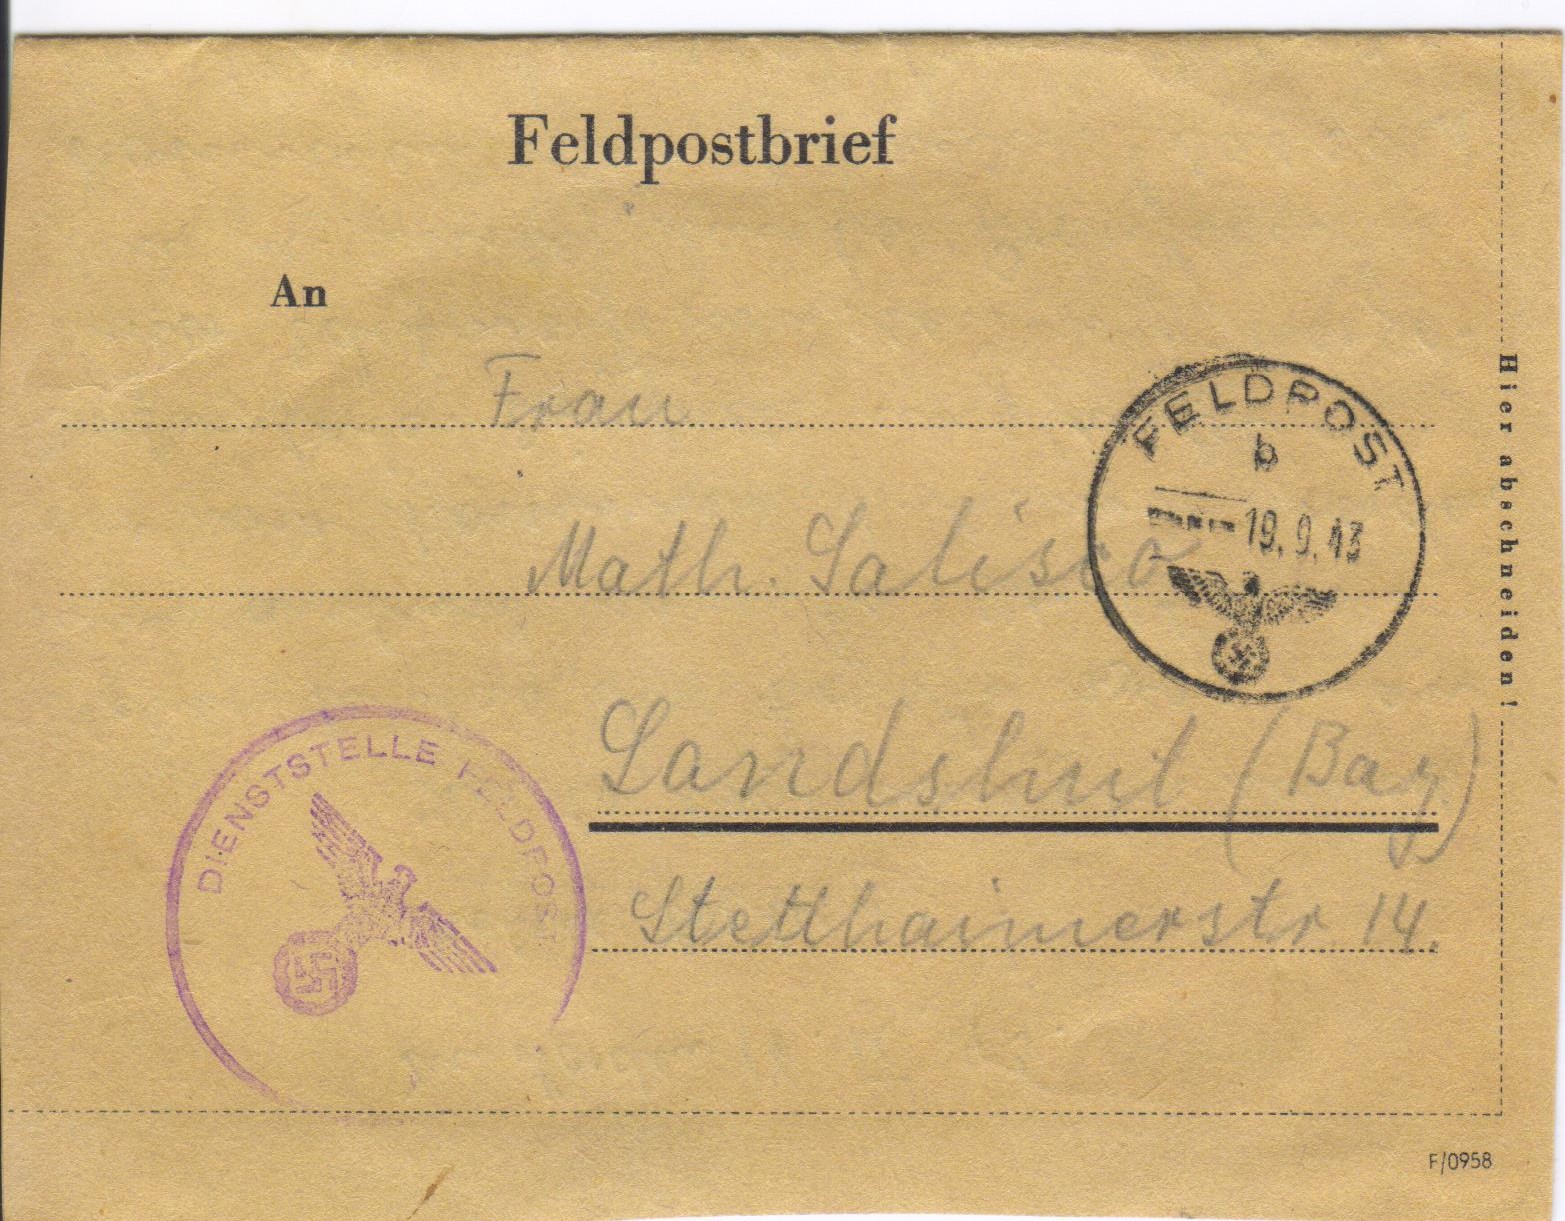 Feldpostbrief
An
Frau
Math. Salisco
Landshut (Bay.)
Stetthaimerstr 14.
FELDPOST
b
19.9.43
DIENSTSTELLE FELDPOST
Hier abschneiden!
F/0958